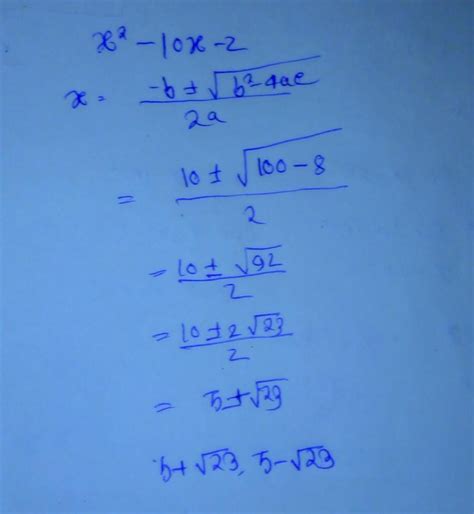 x² - 10x - 2
x = (-b ± √(b² - 4ac)) / 2a
= (10 ± √(100 - 8)) / 2
= (10 ± √92) / 2
= (10 ± 2√23) / 2
= 5 ± √23
5 + √23, 5 - √23